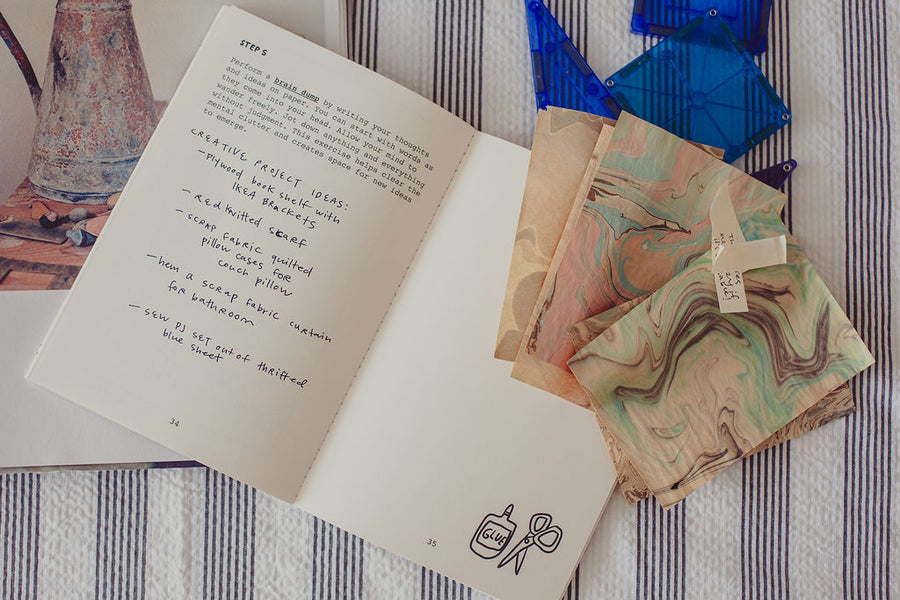 STEP 5
Perform a brain dump by writing your thoughts
and ideas on paper. You can start with words as
they come into your head. Allow your mind to
wander freely. Jot down anything and everything
without judgment. This exercise helps clear the
mental clutter and creates space for new ideas
to emerge.
CREATIVE PROJECT IDEAS:
- Plywood book shelf with
IKEA BRACKETS
- Red knitted scarf
- SCRAP FABRIC quilted
pillow cases for
couch pillow
- hem a scrap fabric curtain
for bathroom
- SEW PJ SET out of thrifted
blue sheet
34
GLUE
35